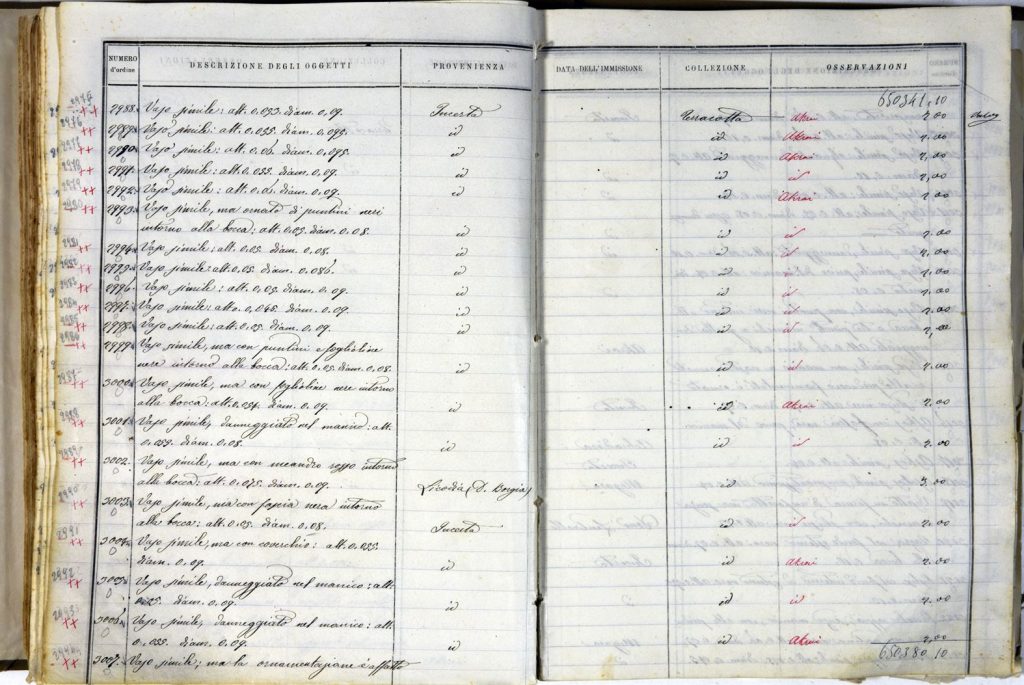 NUMERO d'ordine DESCRIZIONE DEGLI OGGETTI PROVENIENZA DATA DELL'IMMISSIONE COLLEZIONE OSSERVAZIONI
650341,10
2988 Vaso simile: alt. 0.053. diam. 0.09. Incerta Terracotta Akrai 2,00
2989 Vaso simile: alt. 0.055. diam. 0.095. id id Akrai 2,00
2990 Vaso simile: alt. 0.06. diam. 0.095. id id Akrai 2,00
2991 Vaso simile: alt. 0.055. diam. 0.09. id id id 2,00
2992 Vaso simile: alt. 0.06. diam. 0.09. id id Akrai 2,00
2993 Vaso simile, ma ornato di puntini neri
intorno alla bocca: alt. 0.05. diam. 0.08. id id id 2,00
2994 Vaso simile: alt. 0.05. diam. 0.08. id id id 2,00
2995 Vaso simile: alt. 0.05. diam. 0.086. id id id 2,00
2996 Vaso simile: alt. 0.05. diam. 0.09. id id id 2,00
2997 Vaso simile: alt. 0.045. diam. 0.09. id id id 2,00
2998 Vaso simile: alt. 0.05. diam. 0.09. id id id 2,00
2999 Vaso simile, ma con puntini e foglioline
nere intorno alla bocca: alt. 0.05. diam. 0.08. id id id 2,00
3000 Vaso simile, ma con foglioline nere intorno
alla bocca: alt. 0.054. diam. 0.09. id id Akrai 2,00
3001 Vaso simile, danneggiato nel manico: alt.
0.055. diam. 0.08. id id id 2,00
3002 Vaso simile, ma con meandro rosso intorno
alla bocca: alt. 0.075. diam. 0.09. Licodia (D. Borgia) id 3,00
3003 Vaso simile, ma con fascia nera intorno
alla bocca: alt. 0.05. diam. 0.08. Incerta id id 2,00
3004 Vaso simile, ma con coverchio: alt. 0.055.
diam. 0.09. id id Akrai 2,00
3005 Vaso simile, danneggiato nel manico: alt.
0.05. diam. 0.09. id id id 2,00
3006 Vaso simile, danneggiato nel manico: alt.
0.055. diam. 0.09. id id Akrai 2,00
650380,10
3007 Vaso simile; ma la ornamentazione è affatto